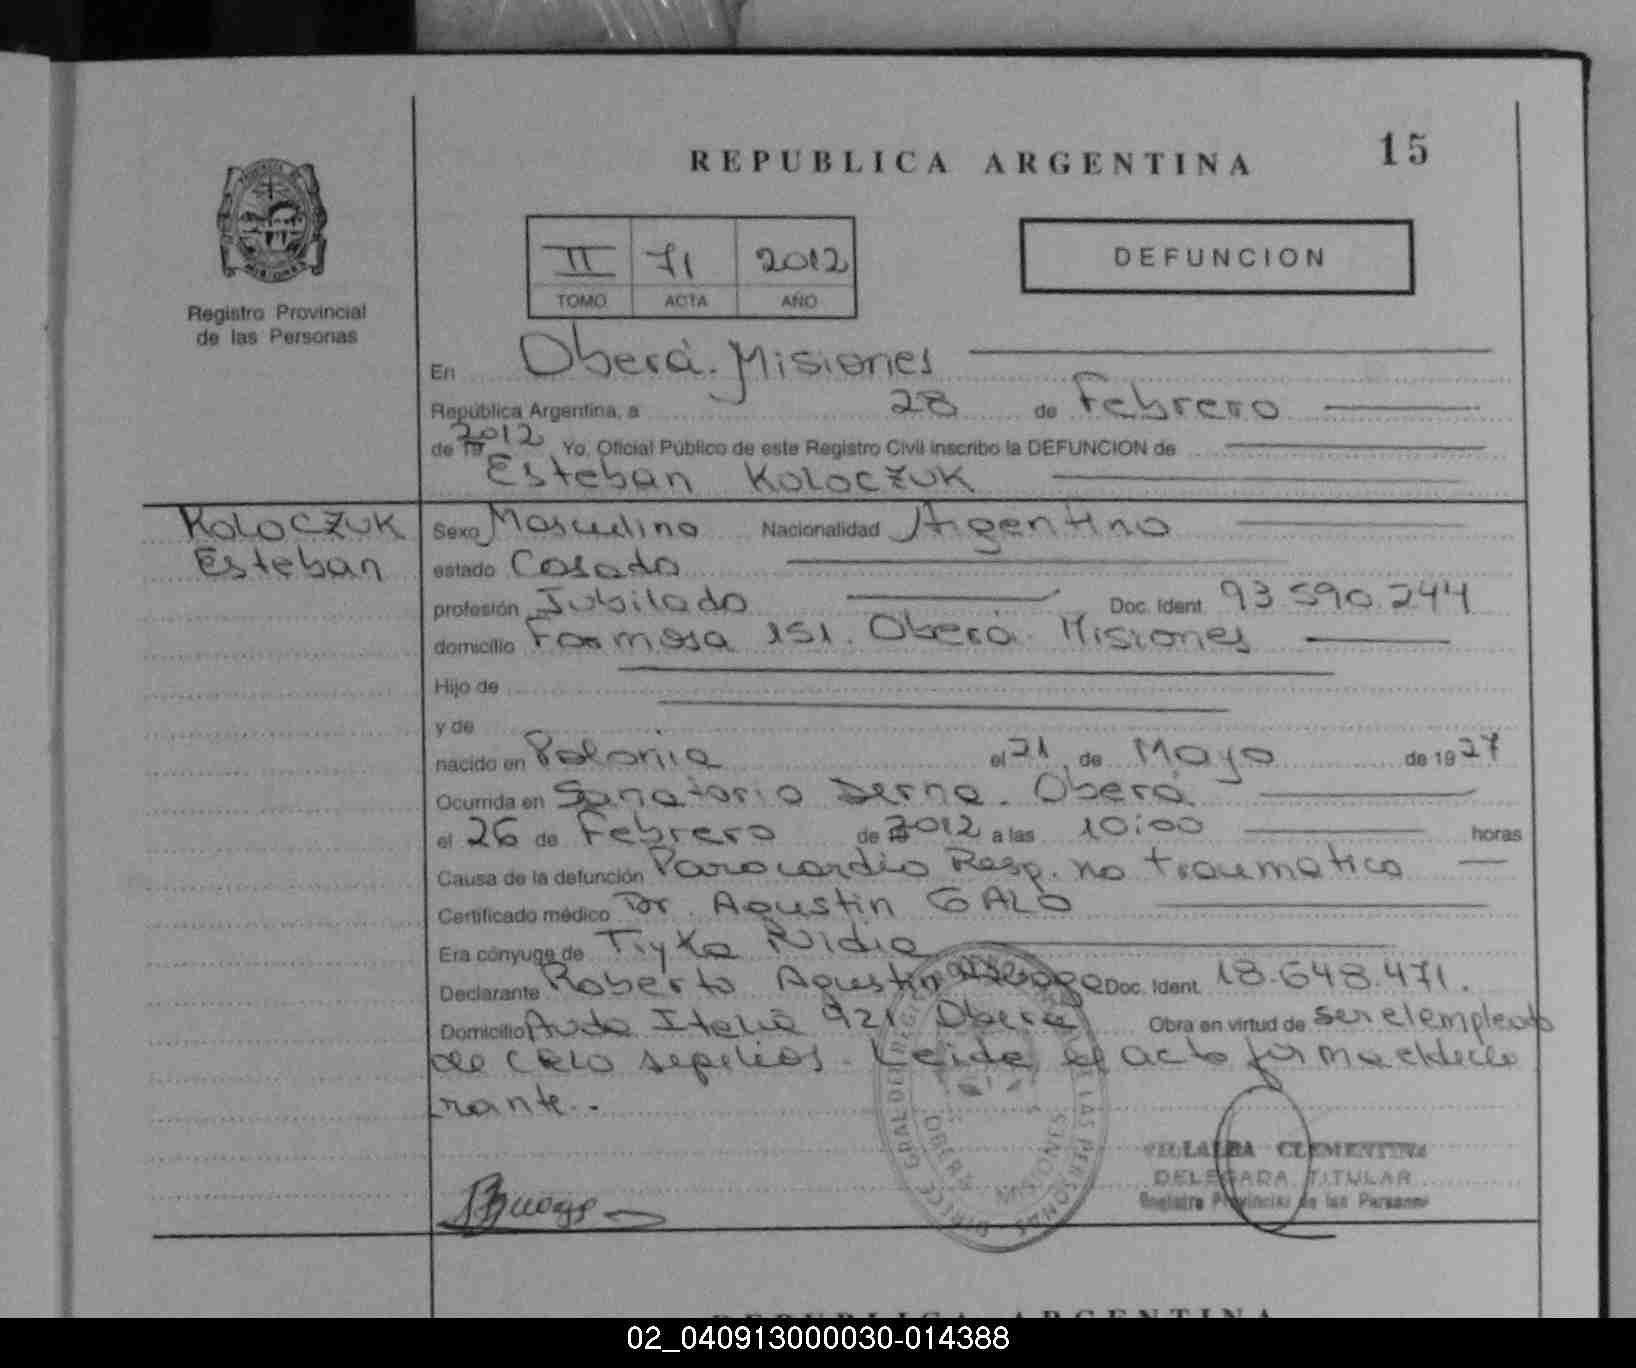 REPUBLICA ARGENTINA
15
MISIONES
Registro Provincial
de las Personas
II 71 2012
TOMO ACTA AÑO
DEFUNCION
En Oberá. Misiones
República Argentina, a 28 de Febrero
de 19 2012 Yo, Oficial Público de este Registro Civil inscribo la DEFUNCION de
Esteban KOLOCZUK
KOLOCZUK
Esteban
Sexo Masculino Nacionalidad Argentino
estado Casado
profesión Jubilado Doc. Ident. 93 590.244
domicilio Formosa 151. Oberá. Misiones
Hijo de
y de
nacido en Polonia el 21 de Mayo de 19 27
Ocurrida en Sanatorio Derna. Oberá
el 26 de Febrero de 2012 a las 10:00 horas
Causa de la defunción Parocardio Resp. no traumatico
Certificado médico Dr. Agustin GALO
Era cónyuge de
Declarante Roberto Agustin Doc. Ident. 18.648.471.
Domicilio Avda Italia 921 Oberá Obra en virtud de ser el empleado
de sepelios. Leida el acta firma el decla
rante.
OBERA
MISIONES
VILLALBA CLEMENTINA
DELEGADA TITULAR
Registro Provincial de las Personas
REPUBLICA ARGENTINA
02_040913000030-014388